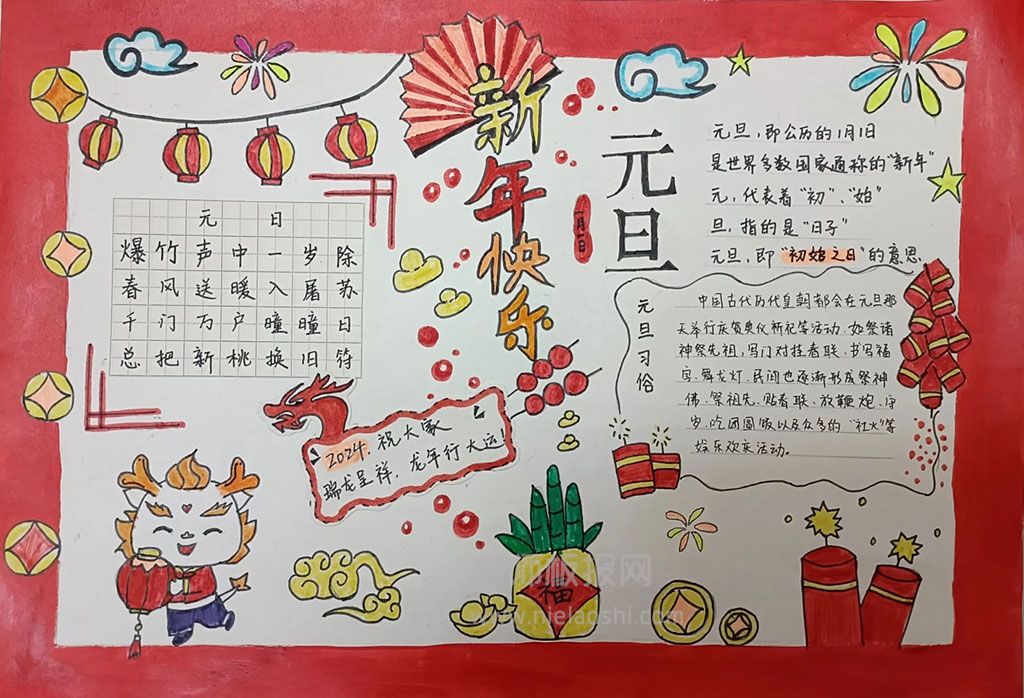 元日
爆竹声中一岁除
春风送暖入屠苏
千门万户曈曈日
总把新桃换旧符
新年快乐
一月一日
元旦
元旦,即公历的1月1日
是世界多数国家通称的“新年”
元,代表着“初”、“始”
旦,指的是“日子”
元旦,即“初始之日”的意思
元旦习俗
中国古代历代皇朝都会在元旦那
天举行庆贺典仪祈祀等活动,如祭诸
神祭先祖,写门对挂春联、书写福
字、舞龙灯,民间也逐渐形成祭神
佛、祭祖先、贴春联、放鞭炮、守
岁、吃团圆饭以及众多的“社火”等
娱乐欢庆活动。
2024,祝大家
瑞龙呈祥,龙年行大运!
福
板报网
www.nielaoshi.com